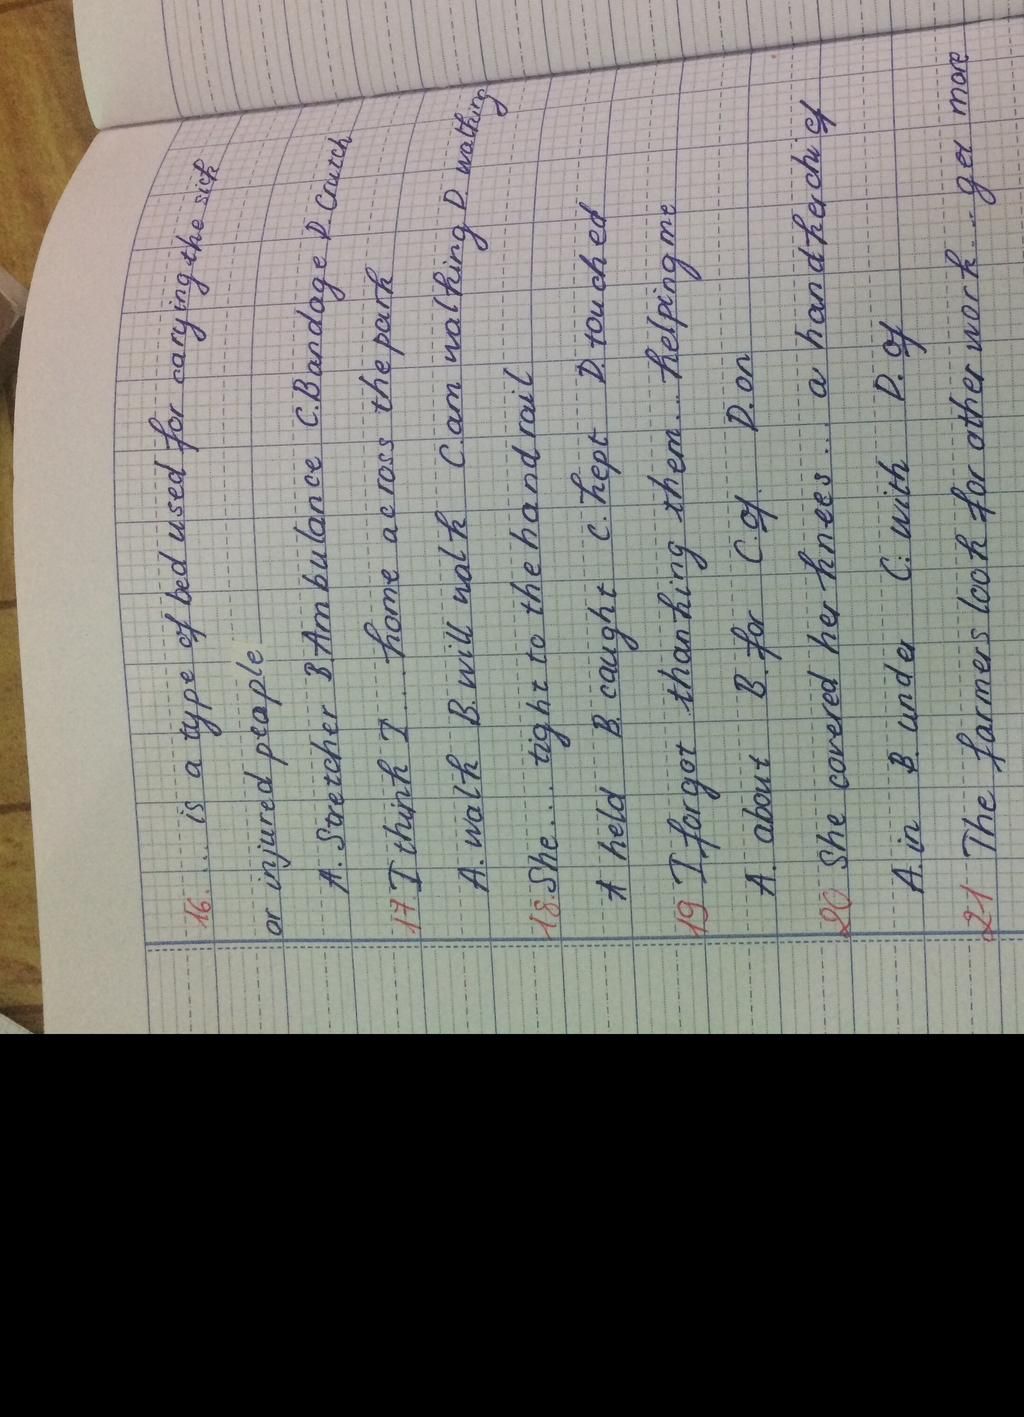 16. ... is a type of bed used for carying the sick
or injured people
A. Stretcher B Ambulance C. Bandage D Crutch
17. I think I ... home across the park
A. walk B. will walk C. am walking D walking
18. She ... tight to the handrail
A held B. caught C. kept D. touched
19 I forgot thanking them ... helping me
A. about B. for C. of D. on
20 She covered her knees ... a handkerchief
A. in B. under C. with D. of
21 The farmers look for other work ... get more